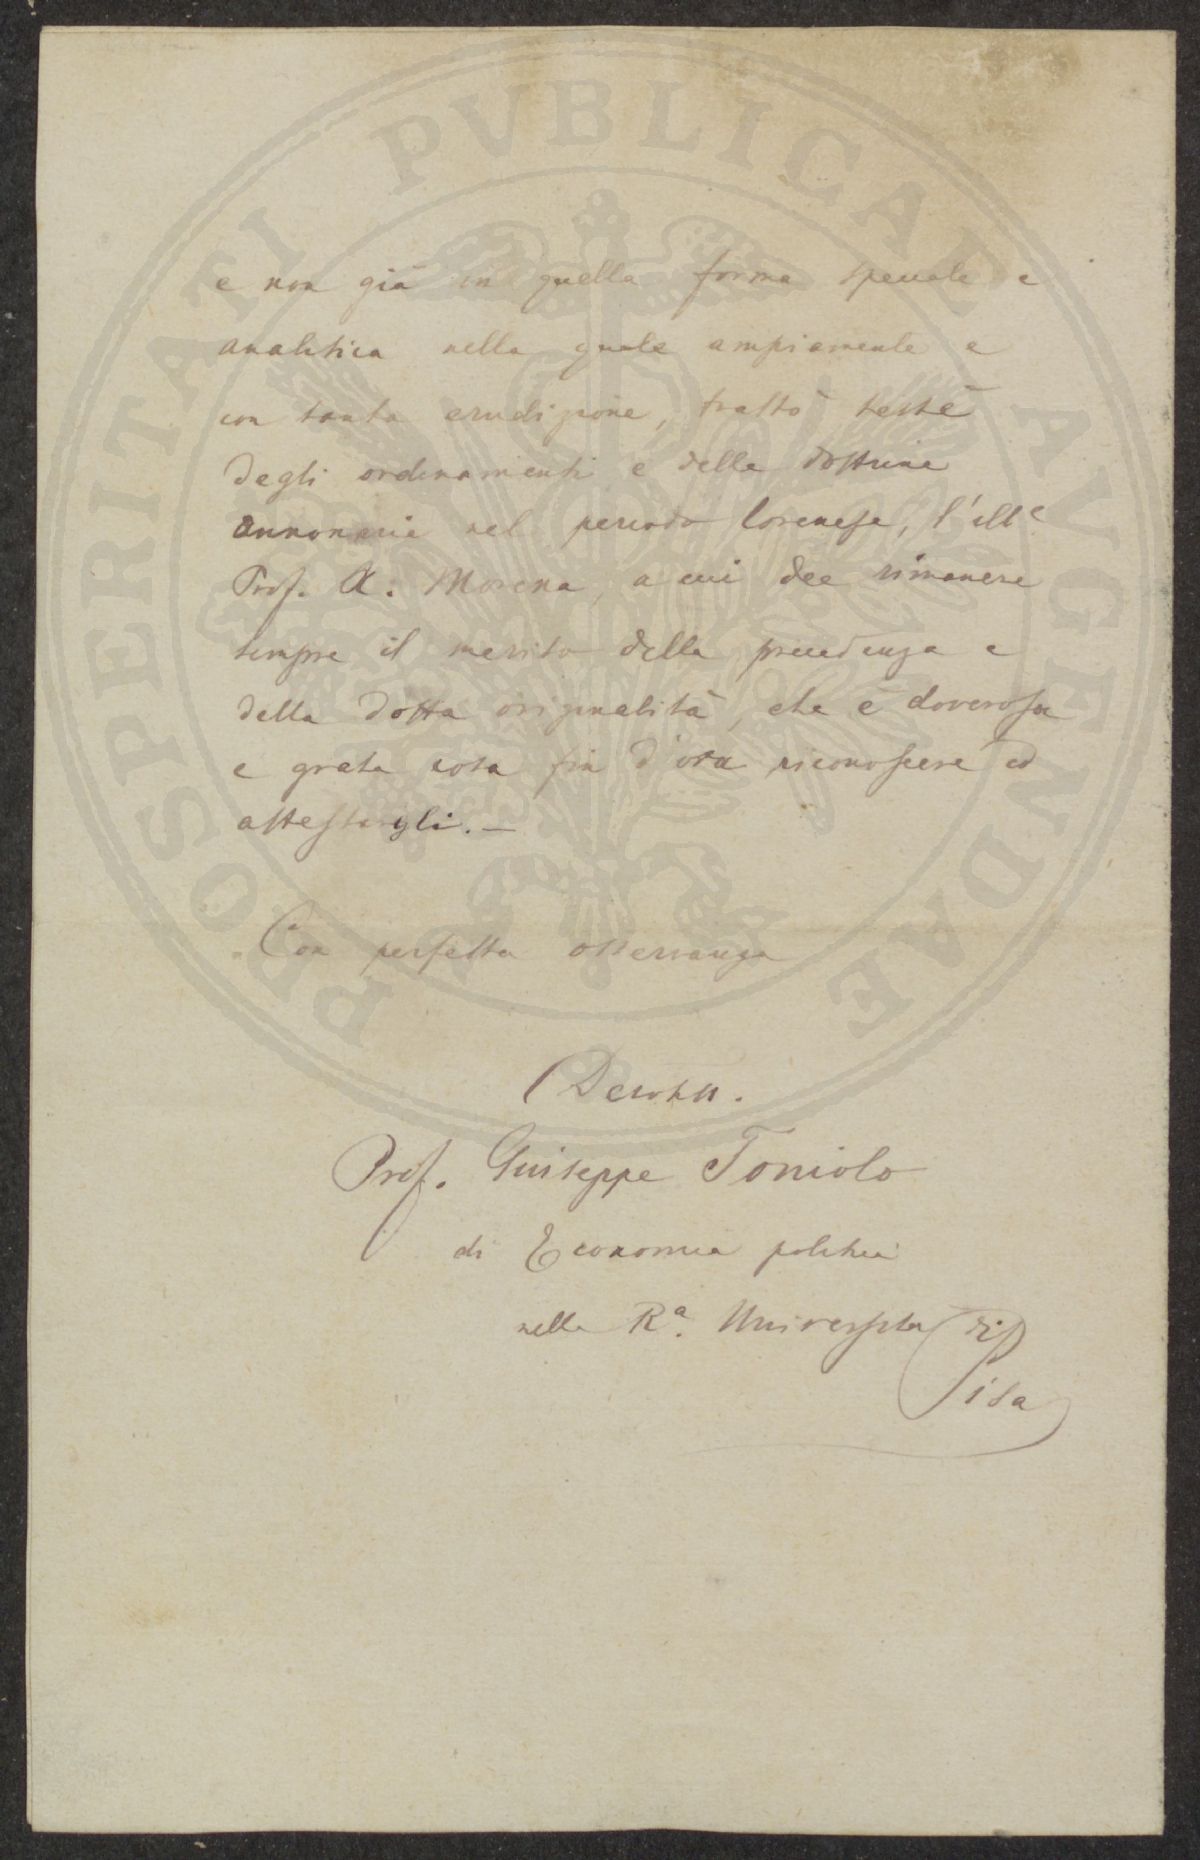 PROSPERITATI PVBLICAE AVGENDAE
e non già in quella forma speciale e
analitica nella quale ampiamente e
con tanta erudizione, trattò testè
degli ordinamenti e delle dottrine
annonarie nel periodo lorenese, l'ill.e
Prof. A. Morena, a cui dee rimanere
sempre il merito della precedenza e
della dotta originalità, che è doverosa
e grata cosa fin d'ora riconoscere ed
attestargli. —
Con perfetta osservanza
Devotss.
Prof. Giuseppe Toniolo
di Economia politica
nella R.a Università di
Pisa